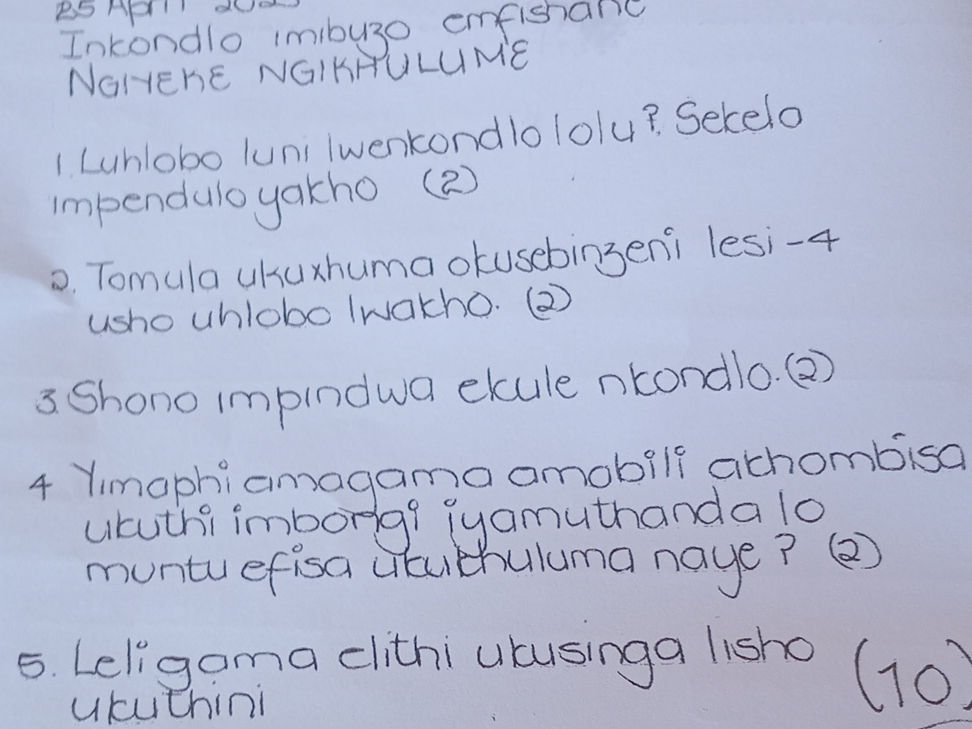 25 April
Inkondlo imibuzo emfishane
NGIYEKE NGIKHULUME
1. Luhlobo luni lwenkondlo lolu? Sekela
impendulo yakho (2)
2. Tomula ukuxhuma okusebinzeni lesi-4
usho uhlobo lwakho. (2)
3. Shono impindwa ekule nkondlo. (2)
4 Yimaphi amagama amabili akhombisa
ukuthi imbongi iyamuthanda lo
muntu efisa ukukhuluma naye? (2)
5. Leli gama elithi ukusinga lisho (10)
ukuthini